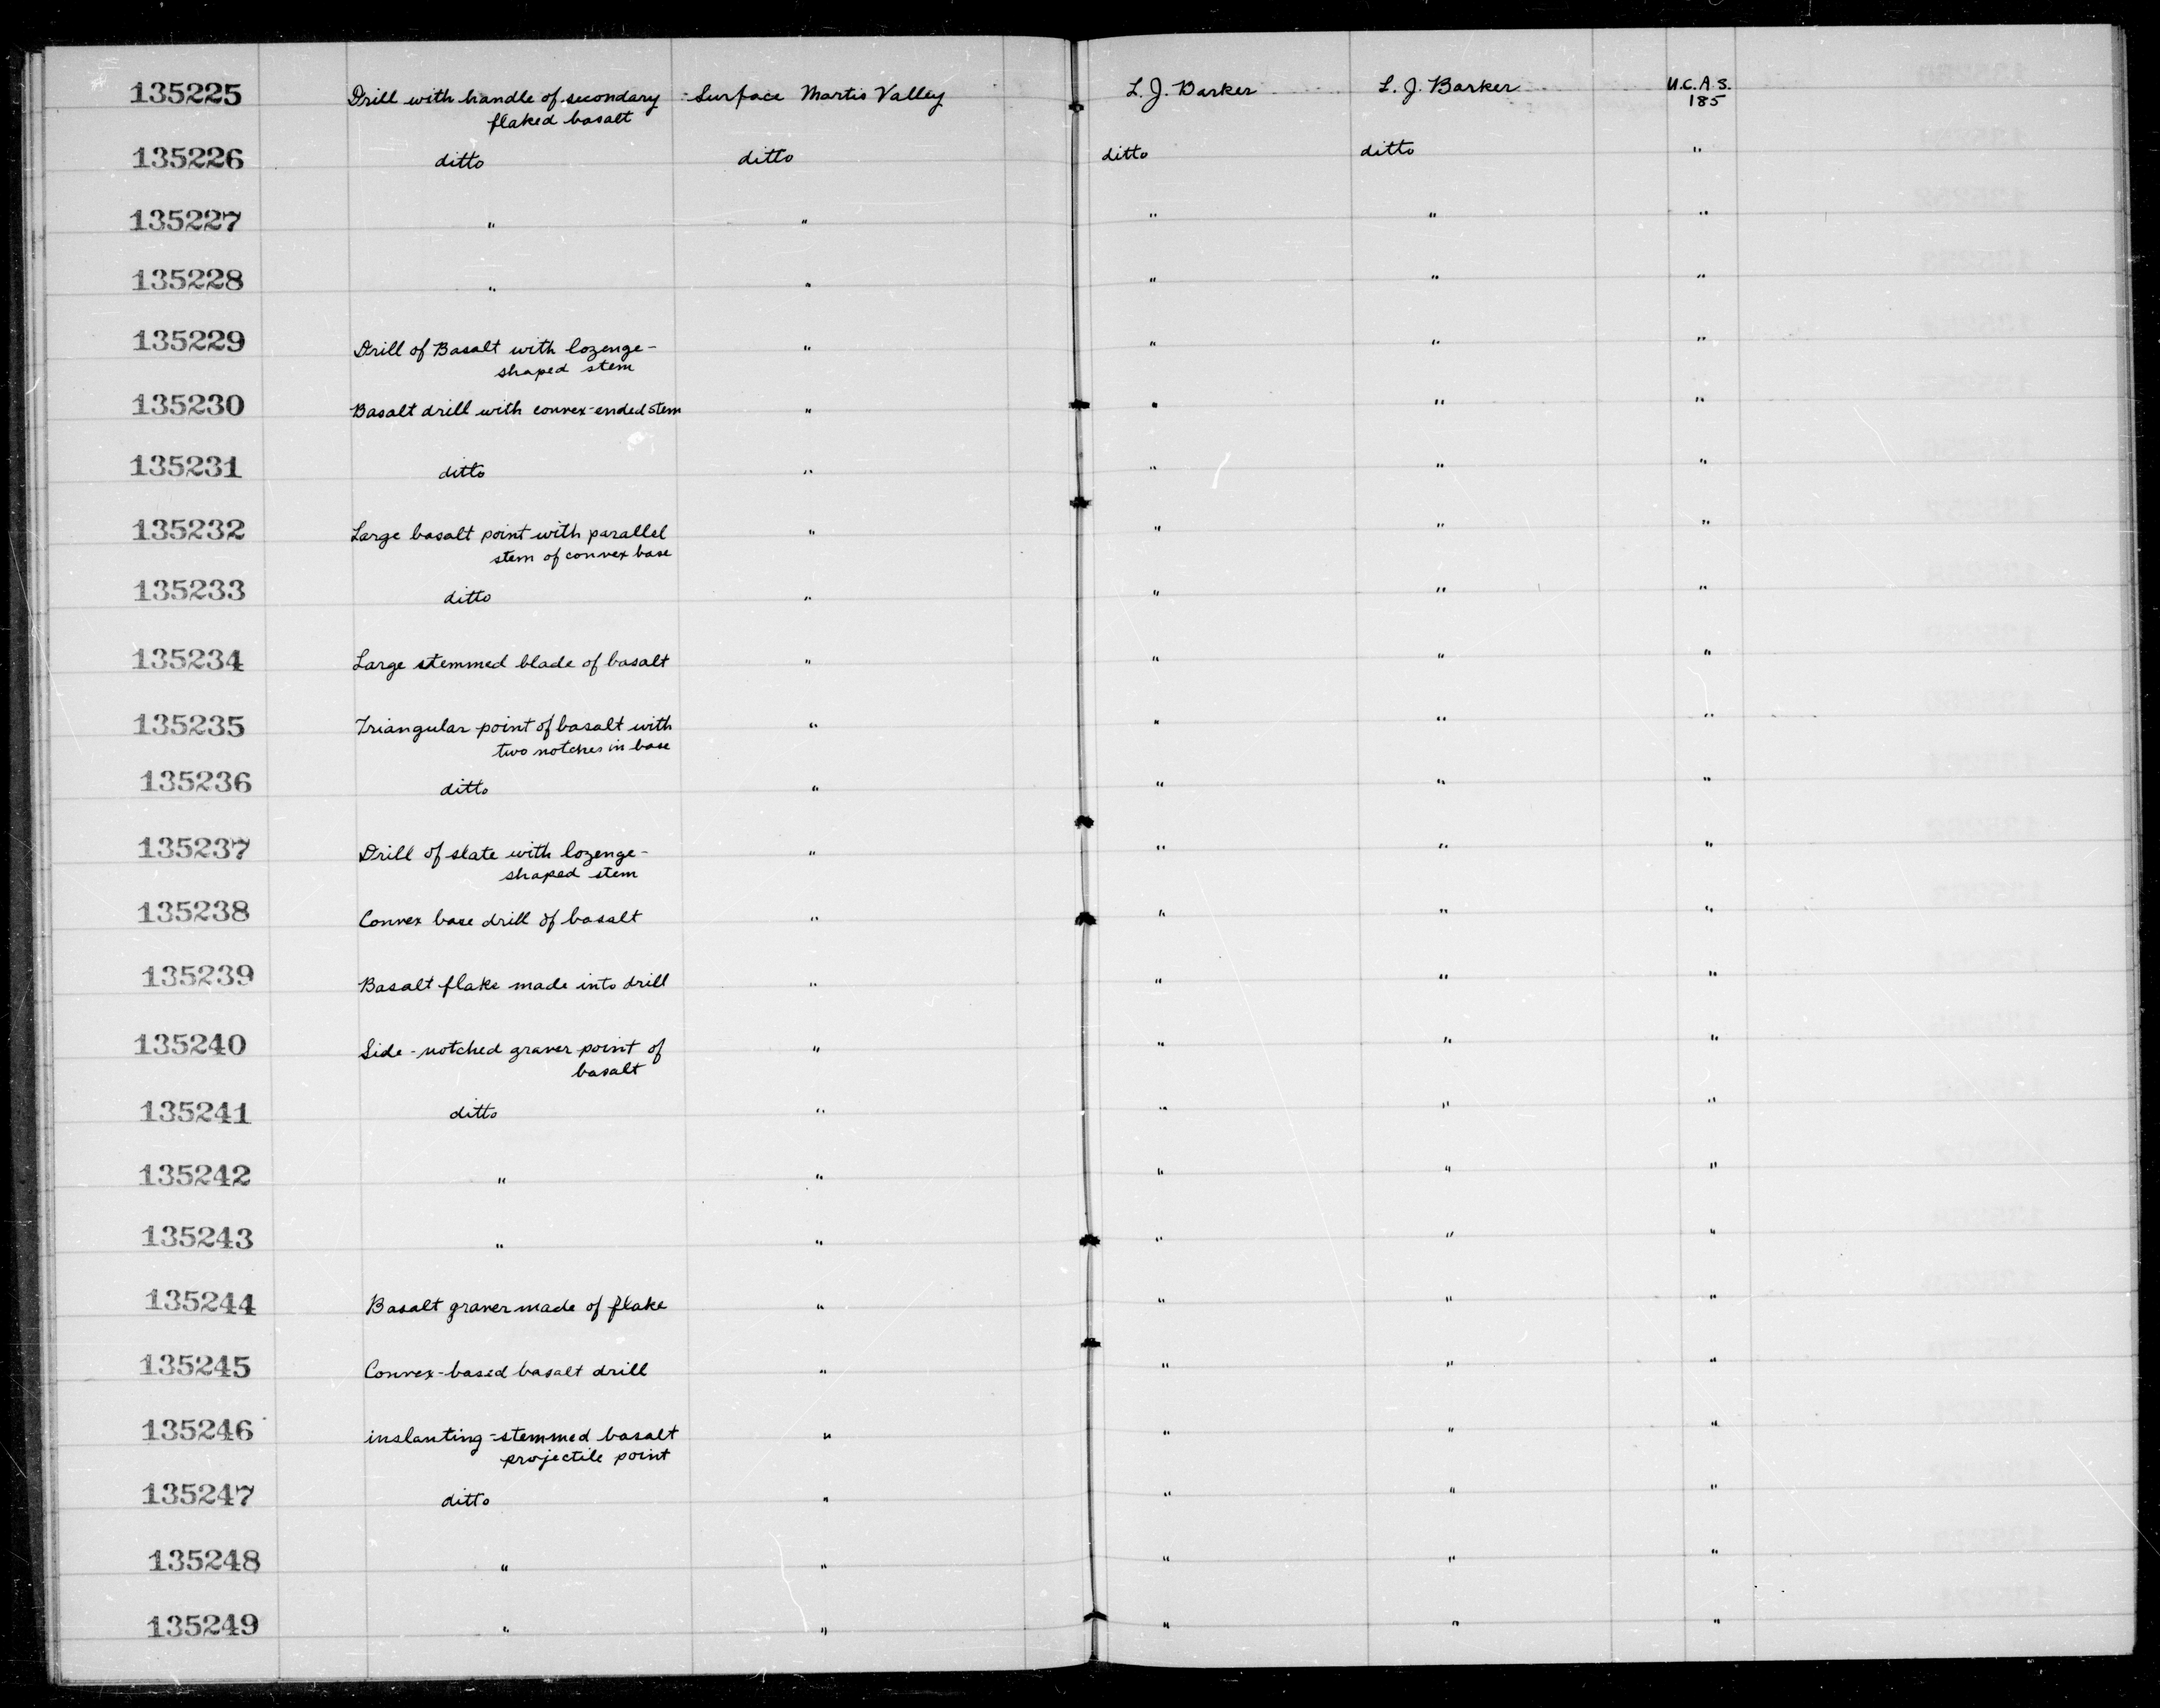 135225 Drill with handle of secondary Surface Martis Valley L. J. Barker L. J. Barker U.C.A.S.
flaked basalt 185
135226 ditto ditto ditto ditto "
135227 " " " " "
135228 " " " " "
135229 Drill of Basalt with lozenge- " " " "
shaped stem
135230 Basalt drill with convex-ended stem " " " "
135231 ditto " " " "
135232 Large basalt point with parallel " " " "
stem of convex base
135233 ditto " " " "
135234 Large stemmed blade of basalt " " " "
135235 Triangular point of basalt with " " " "
two notches in base
135236 ditto " " " "
135237 Drill of slate with lozenge- " " " "
shaped stem
135238 Convex base drill of basalt " " " "
135239 Basalt flake made into drill " " " "
135240 Side-notched graver point of " " " "
basalt
135241 ditto " " " "
135242 " " " " "
135243 " " " " "
135244 Basalt graver made of flake " " " "
135245 Convex-based basalt drill " " " "
135246 inslanting-stemmed basalt " " " "
projectile point
135247 ditto " " " "
135248 " " " " "
135249 " " " " "